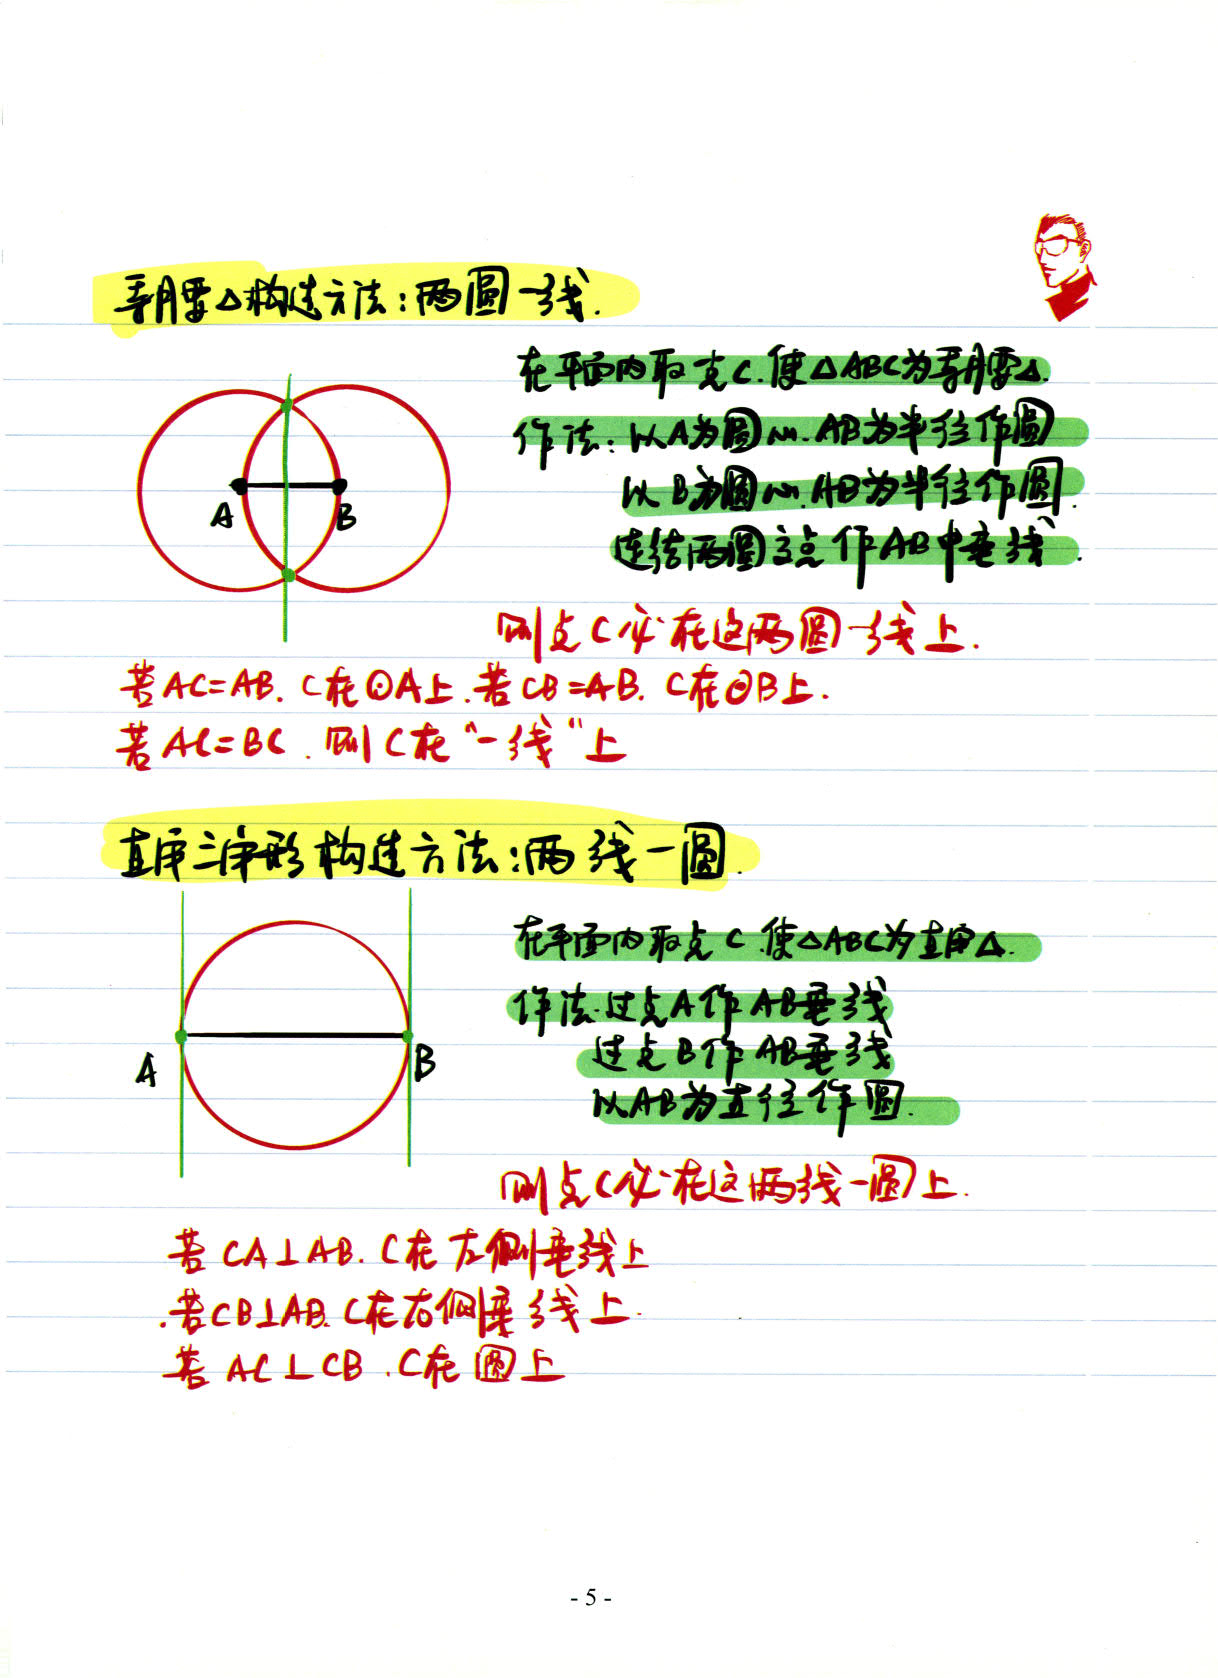 等腰△构造方法:两圆一线.
在平面内取点C.使△ABC为等腰△.
作法:以A为圆心.AB为半径作圆
以B为圆心.AB为半径作圆.
连结两圆交点作AB中垂线.
A
B
则点C必在这两圆一线上.
若AC=AB. C在⊙A上.若CB=AB. C在⊙B上.
若AC=BC.则C在“一线”上
直角三角形构造方法:两线一圆.
在平面内取点C.使△ABC为直角△.
作法.过点A作AB垂线
过点B作AB垂线
以AB为直径作圆.
A
B
则点C必在这两线一圆上.
若CA⊥AB. C在左侧垂线上
.若CB⊥AB. C在右侧垂线上.
若AC⊥CB.C在圆上
- 5 -